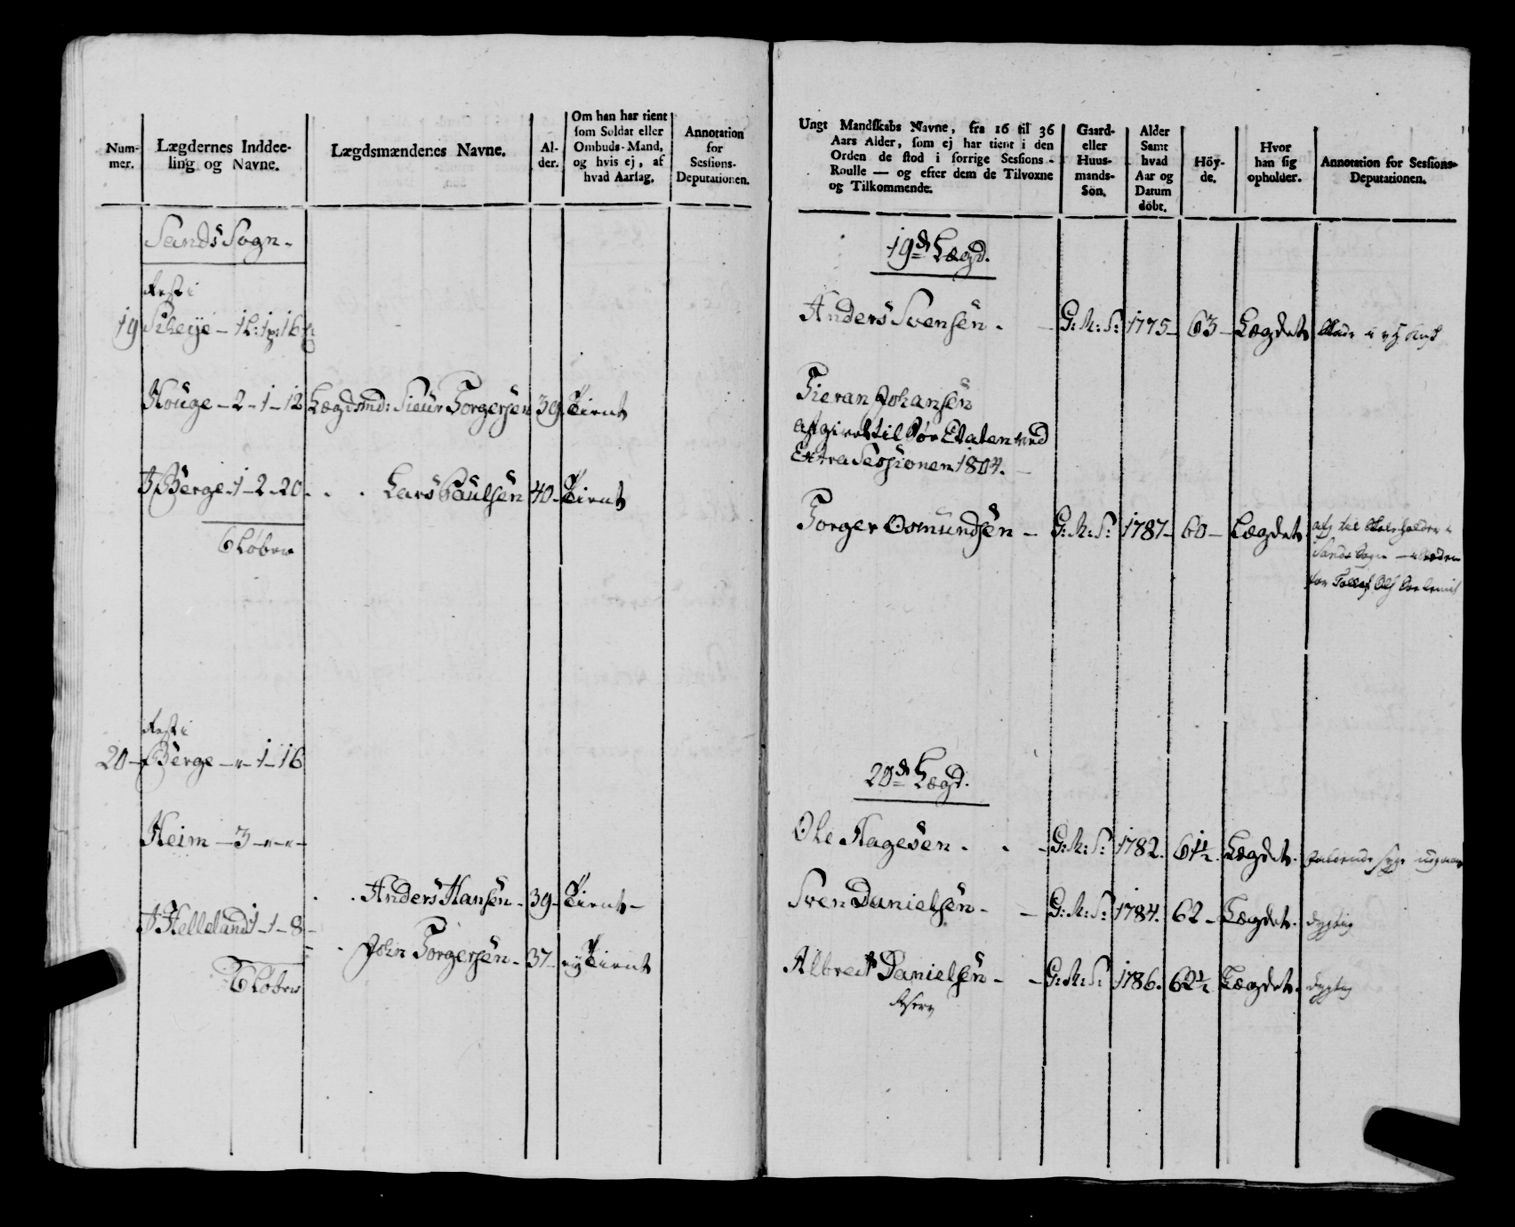 Num-
mer.
Lægdernes Inddee-
ling og Navne.
Lægdsmændenes Navne.
Al-
der.
Om han har tient
som Soldat eller
Ombuds-Mand,
og hvis ej, af
hvad Aarsag.
Annotation
for
Sessions-
Deputationen.
Sands Sogn.
Rest i
19 Scheije - 1L: 1p: 16
Houge - 2 - 1 - 12 Lægdsmd: Sieur Torgersen 39. Tient
I Berge - 1 - 2 - 20. Lars Paulsen 40. Tient
6 Løber
Rest i
20 - Berge - " - 1 - 16
Heim - 3 - " - " -
Anders Hansen - 39 - Tient -
I Helleland 1 - 1 - 8 -
John Torgersen - 37 - ej Tient
6 Løber
Ungt Mandskabs Navne, fra 16 til 36
Aars Alder, som ej har tient i den
Orden de stod i forrige Sessions-
Roulle — og efter dem de Tilvoxne
og Tilkommende.
Gaard-
eller
Huus-
mands-
Søn.
Alder
Samt
hvad
Aar og
Datum
döbt.
Höy-
de.
Hvor
han sig
opholder.
Annotation for Sessions-
Deputationen.
19de Lægd.
Anders Svensen. G: M: S: 1775 - 63 - Lægdet
Tieran Johansen
afgivet til Søe Etaten ved
Extra Sessionen 1804.
Torger Osmundsen - G: M: S: 1787 - 60 - Lægdet afg til
Sands Sogn
for Tollef Ols
20de Lægd.
Ole Aagesen. G: M: S: 1782. 61½. Lægdet.
Sven Danielsen - G: M: S: 1784. 62 - Lægdet. dygtig
Albret Danielsen - G: M: S: 1786. 62½ Lægdet. dygtig
Reserv